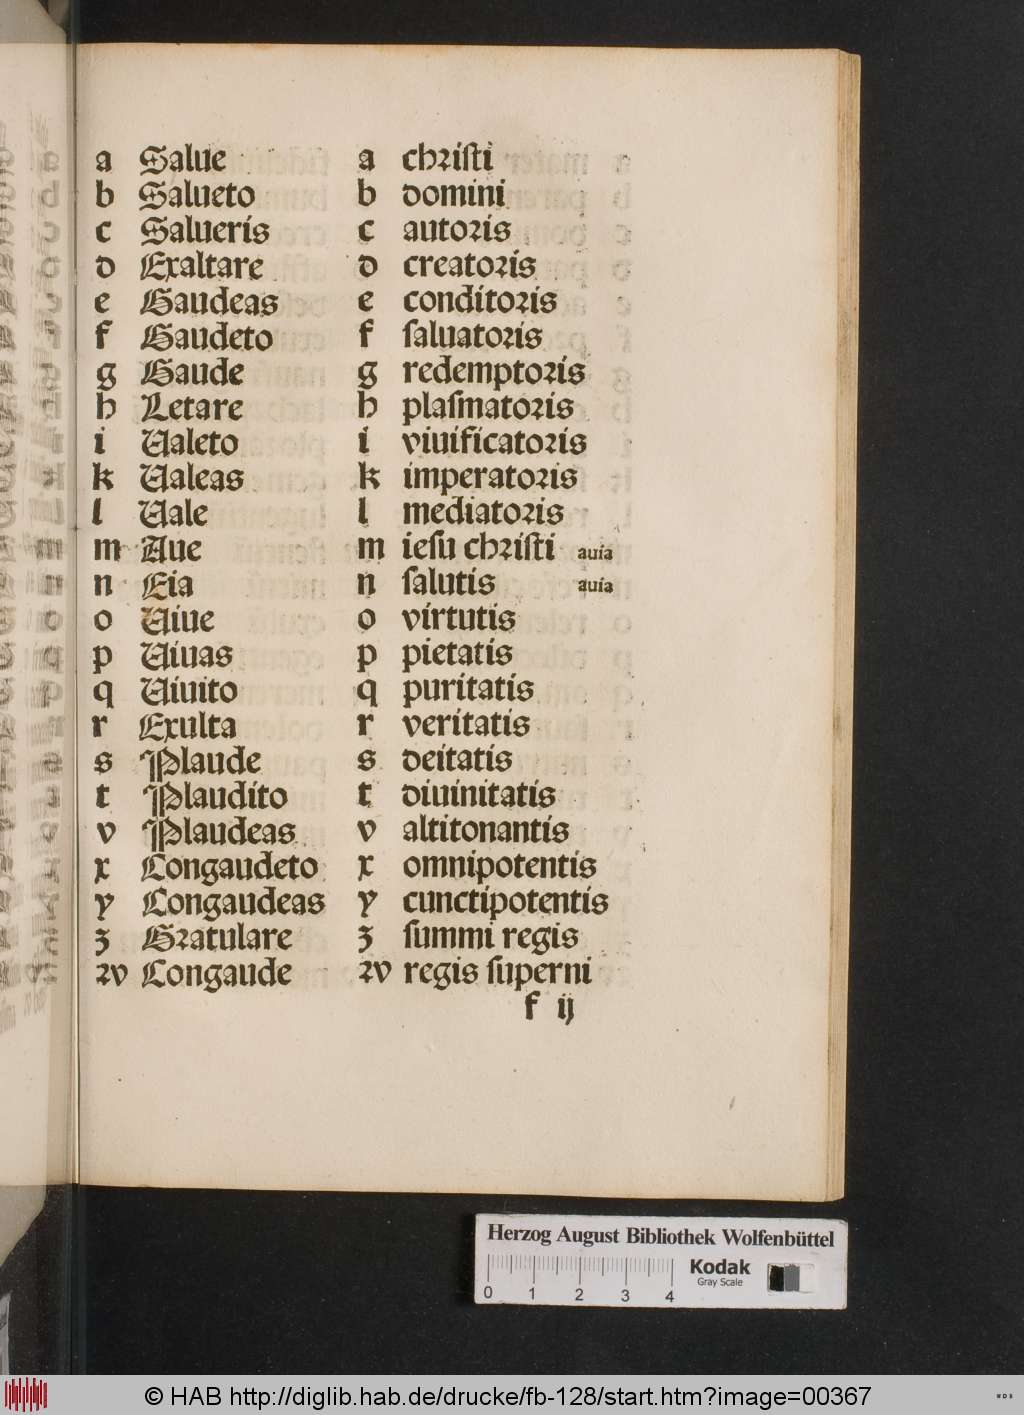 a Salue a christi
b Salueto b domini
c Salueris c autoris
d Exaltare d creatoris
e Gaudeas e conditoris
f Gaudeto f saluatoris
g Gaude g redemptoris
h Letare h plasmatoris
i Ualeto i viuificatoris
k Ualeas k imperatoris
l Uale l mediatoris
m Aue m iesu christi auia
n Eia n salutis auia
o Uiue o virtutis
p Uiuas p pietatis
q Uiuito q puritatis
r Exulta r veritatis
s Plaude s deitatis
t Plaudito t diuinitatis
v Plaudeas v altitonantis
x Congaudeto x omnipotentis
y Congaudeas y cunctipotentis
z Gratulare z summi regis
rv Congaude rv regis superni
f ij
Herzog August Bibliothek Wolfenbüttel
Kodak
Gray Scale
0 1 2 3 4
© HAB http://diglib.hab.de/drucke/fb-128/start.htm?image=00367